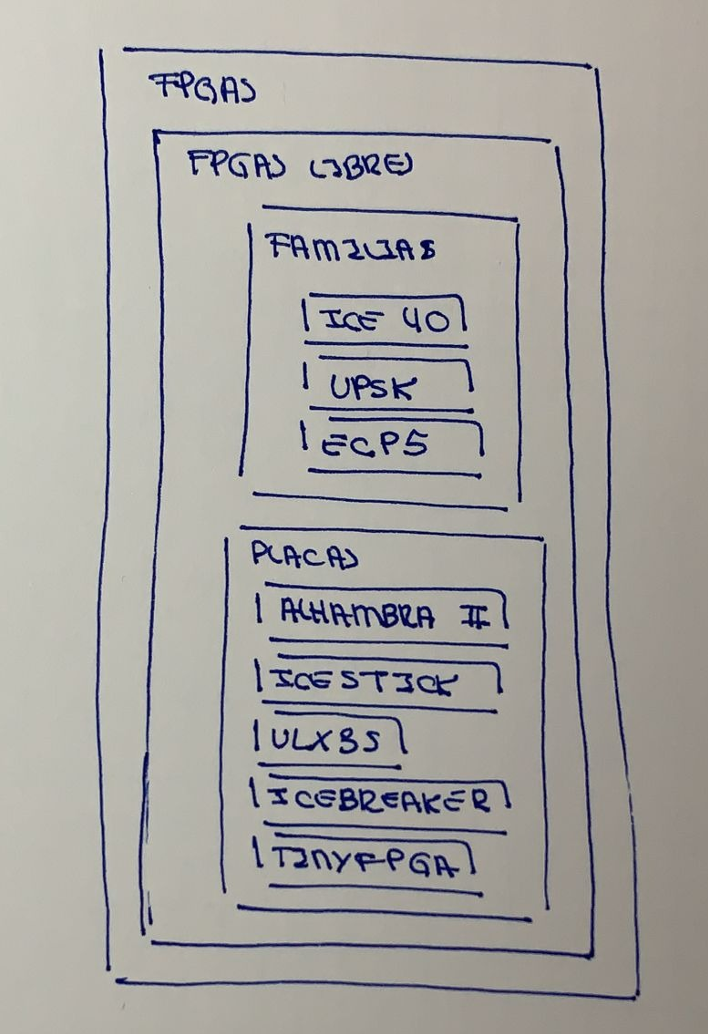 FPGAS
FPGAS LIBRES
FAMILIAS
ICE 40
UP5K
ECP5
PLACAS
ALHAMBRA II
ICESTICK
ULX3S
ICEBREAKER
TINYFPGA